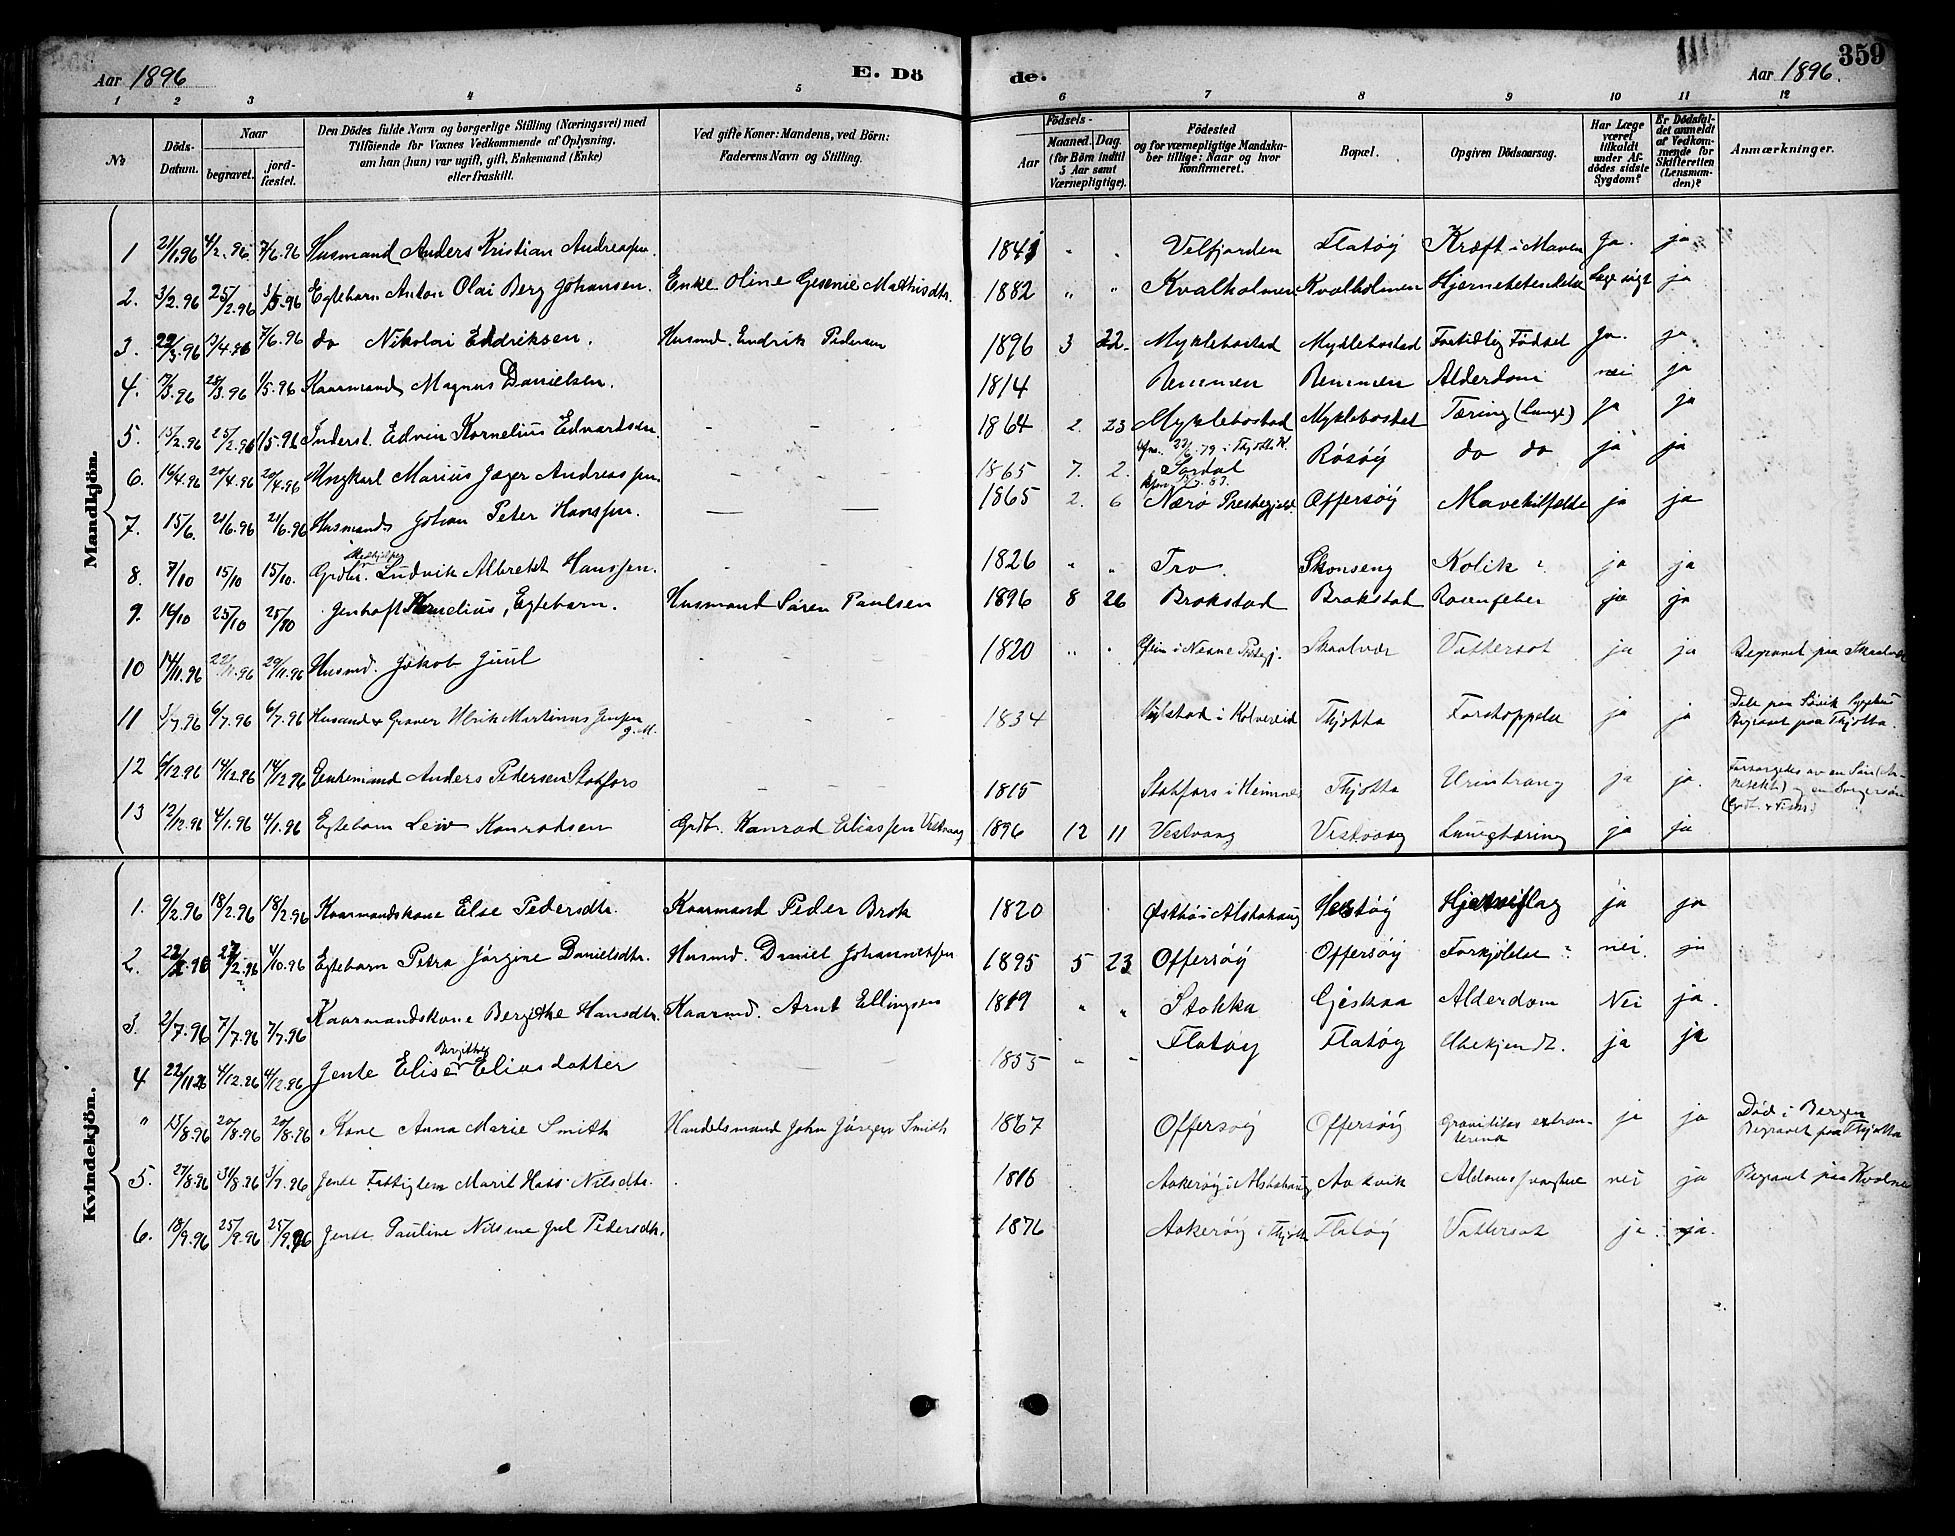 359
Aar 1896 E. Dö de. Aar 1896.
1 2 3 4 5 6 7 8 9 10 11 12
No
Döds-Datum.
Naar
begravet. jord-fæstet.
Den Dödes fulde Navn og borgerlige Stilling (Næringsvei) med
Tilföiende for Voxnes Vedkommende af Oplysning,
om han (hun) var ugift, gift, Enkemand (Enke)
eller fraskilt.
Ved gifte Koner: Mandens, ved Börn:
Faderens Navn og Stilling.
Födsels-
Aar Maaned. Dag.
(for Börn indtil 5 Aar samt Værnepligtige).
Födested
og for værnepligtige Mandska-
ber tillige: Naar og hvor
konfirmeret.
Bopæl.
Opgiven Dödsaarsag.
Har Læge været tilkaldt under Af-dödes sidste Sygdom?
Er Dödsfal-det anmeldt af Vedkom-mende for Skifteretten (Lensman-den)?
Anmærkninger.
Mandkjön.
1 21/1.96 4/2.96 7/6.96 Husmand Anders Kristian Andreassen. 1841 " " Velfjorden Flatöy Kræft i Maven Ja. ja
2. 3/2.96 25/2.96 3/5.96 Egtebarn Anton Olai Berg Johansen. Enke Oline Gesenie Mathisdtr. 1882 " " Kvalholmen Kvalholmen Hjernebetændelse ja
3. 22/3.96 13/4.96 7/6.96 do Nikolai Endriksen. Husmd. Endrik Pedersen 1896 3 22. Myklebostad Myklebostad Fortidlig Födsel Ja. ja
4. 17/3.96 28/3.96 1/5.96 Kaarmand Magnus Danielsen. 1814 Remmen Remmen Alderdom nei ja
5. 15/2.96 25/2.96 1/5.96 Inderst. Edvin Kornelius Edvardsen. - - 1864 2. 23 Myklebostad Myklebostad Tæring (Lunge) ja ja
6. 16/4.96 20/4.96 20/4.96 Ungkarl Marius Jæger Andreassen. 1865 7. 2. Rösöy do do ja ja
7. 15/6. 21/6.96 21/6.96 Husmand Johan Peter Hanssen. — — 1865 2. 6 Nærö Prestegjeld. Offersöy ja ja
8. 7/10 15/10 15/10. Grdbr. Ludvik Albrekt Hanssen. - - 1826 " " Tro. Skonseng Kolik ? ja ja
9. 16/10 25/10 25/10 Jenhoft Kornelius, Egtebarn. Husmand Sören Paulsen 1896 8 26 Brokstad Brokstad Rosenfeber ja ja
10 14/11.96 22/11.96 29/11.96 Husmd. Jakob Juul - - 1820 " " Skaalvær Vattersot ja ja Begravet paa Skaalvær
11 3/7.96 6/7.96 6/7.96 Husmand & Graver Ulrik Martinus Jensen g.M. - - 1834 Kolvereid Thjötta Forstoppelse ja ja Begravet paa Thjötta.
12 6/12.96 14/12.96 14/12.96 Enkemand Anders Pedersen Stokfors - - 1815 Stokfors i Hemnes Thjötta Urintrang ja ja.
13 12/12.96 4/1.96 4/1.96 Egtebarn Leiv Konradsen Grdbr. Konrad Eliassen Vestvaag 1896 12 11 Vestvaag Vestvaag Lungetæring ja ja
Kvindekjön.
1. 9/2.96 18/2.96 18/2.96 Kaarmandskone Else Pedersdtr. Kaarmand Peder Brok 1820 i Alstahaug Hestöy Hjerteslag ja ja
2. 22/2.96 27/2.96 4/10.96 Egtebarn Petra Jörgine Danielsdtr. Husmd. Daniel Johannessen 1895 5 23 Offersöy Offersöy Forkjölelse ? nei. ja
3. 2/7.96 7/7.96 7/7.96 Kaarmandskone Bergithe Hansdtr. Kaarmd. Arnt Ellingsen 1819 " " Stokka Alderdom Nei ja.
4 22/11.96 4/12.96 4/12.96 Jente Elise Bergithe Eliasdatter - - 1855 " " Flatöy Flatöy Ubekjendt. ja ja
" 13/8.96 20/8.96 20/8.96 Kone Anna Marie Smith Handelsmand John Jörgen Smith 1867 Offersöy Offersöy Graviditas extrauterina ja ja Död i Bergen
Begravet paa Thjötta
5. 27/8.96 31/8.96 3/9.96 Jente Fattiglem Marit Hass Nilsdtr. 1816 Aakeröy i Alstahaug Aakvik nei ja Begravet paa
6. 18/9.96 25/9.96 25/9.96 Jente Pauline Nilsine Pedersdtr. 1876 Aakeröy i Thjötta Flatöy Vattersot ja ja.